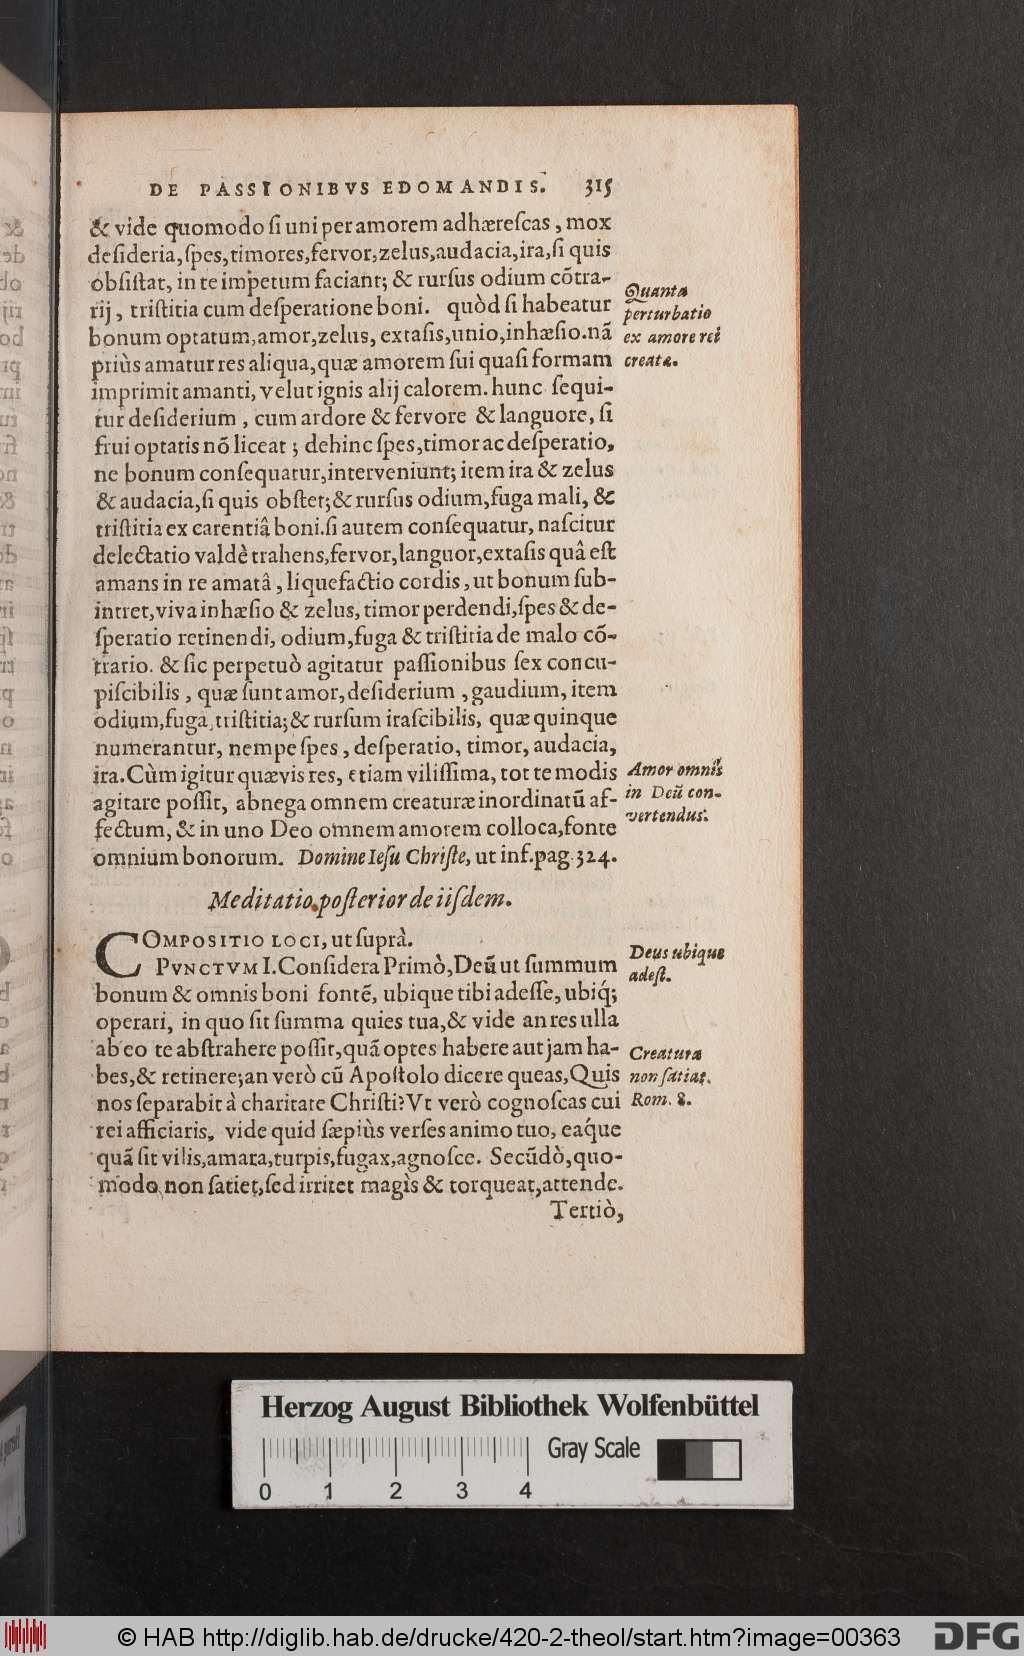 DE PASSIONIBVS EDOMANDIS. 315
& vide quomodo ſi uni per amorem adhæreſcas, mox
deſideria, ſpes, timores, fervor, zelus, audacia, ira, ſi quis
obſiſtat, in te impetum faciant; & rurſus odium cōtra-
rij, triſtitia cum deſperatione boni. quòd ſi habeatur
bonum optatum, amor, zelus, extaſis, unio, inhæſio. nā
priùs amatur res aliqua, quæ amorem ſui quaſi formam
imprimit amanti, velut ignis alij calorem. hunc ſequi-
tur deſiderium, cum ardore & fervore & languore, ſi
frui optatis nō liceat; dehinc ſpes, timor ac deſperatio,
ne bonum conſequatur, interveniunt; item ira & zelus
& audacia, ſi quis obſtet; & rurſus odium, fuga mali, &
triſtitia ex carentiâ boni. ſi autem conſequatur, naſcitur
delectatio valdè trahens, fervor, languor, extaſis quâ eſt
amans in re amatâ, liquefactio cordis, ut bonum ſub-
intret, viva inhæſio & zelus, timor perdendi, ſpes & de-
ſperatio retinendi, odium, fuga & triſtitia de malo cō-
trario. & ſic perpetuò agitatur paſſionibus ſex concu-
piſcibilis, quæ ſunt amor, deſiderium, gaudium, item
odium, fuga, triſtitia; & rurſum iraſcibilis, quæ quinque
numerantur, nempe ſpes, deſperatio, timor, audacia,
ira. Cùm igitur quævis res, etiam viliſſima, tot te modis
agitare poſſit, abnega omnem creaturæ inordinatū af-
fectum, & in uno Deo omnem amorem colloca, fonte
omnium bonorum. Domine Ieſu Chriſte, ut inf. pag. 324.
Quanta
perturbatio
ex amore rei
creatæ.
Amor omnis
in Deū con-
vertendus.
Meditatio poſterior de iiſdem.
COMPOSITIO LOCI, ut ſuprà.
PVNCTVM I. Conſidera Primò, Deū ut ſummum
bonum & omnis boni fontē, ubique tibi adeſſe, ubiq́;
operari, in quo ſit ſumma quies tua, & vide an res ulla
ab eo te abſtrahere poſſit, quā optes habere aut jam ha-
bes, & retinere; an verò cū Apoſtolo dicere queas, Quis
nos ſeparabit à charitate Chriſti? Vt verò cognoſcas cui
rei afficiaris, vide quid ſæpiùs verſes animo tuo, eaq́ue
quā ſit vilis, amara, turpis, fugax, agnoſce. Secūdò, quo-
modo non ſatiet, ſed irritet magìs & torqueat, attende.
Tertiò,
Deus ubique
adeſt.
Creatura
non ſatiat.
Rom. 8.
Herzog August Bibliothek Wolfenbüttel
Gray Scale
0 1 2 3 4
© HAB http://diglib.hab.de/drucke/420-2-theol/start.htm?image=00363
DFG